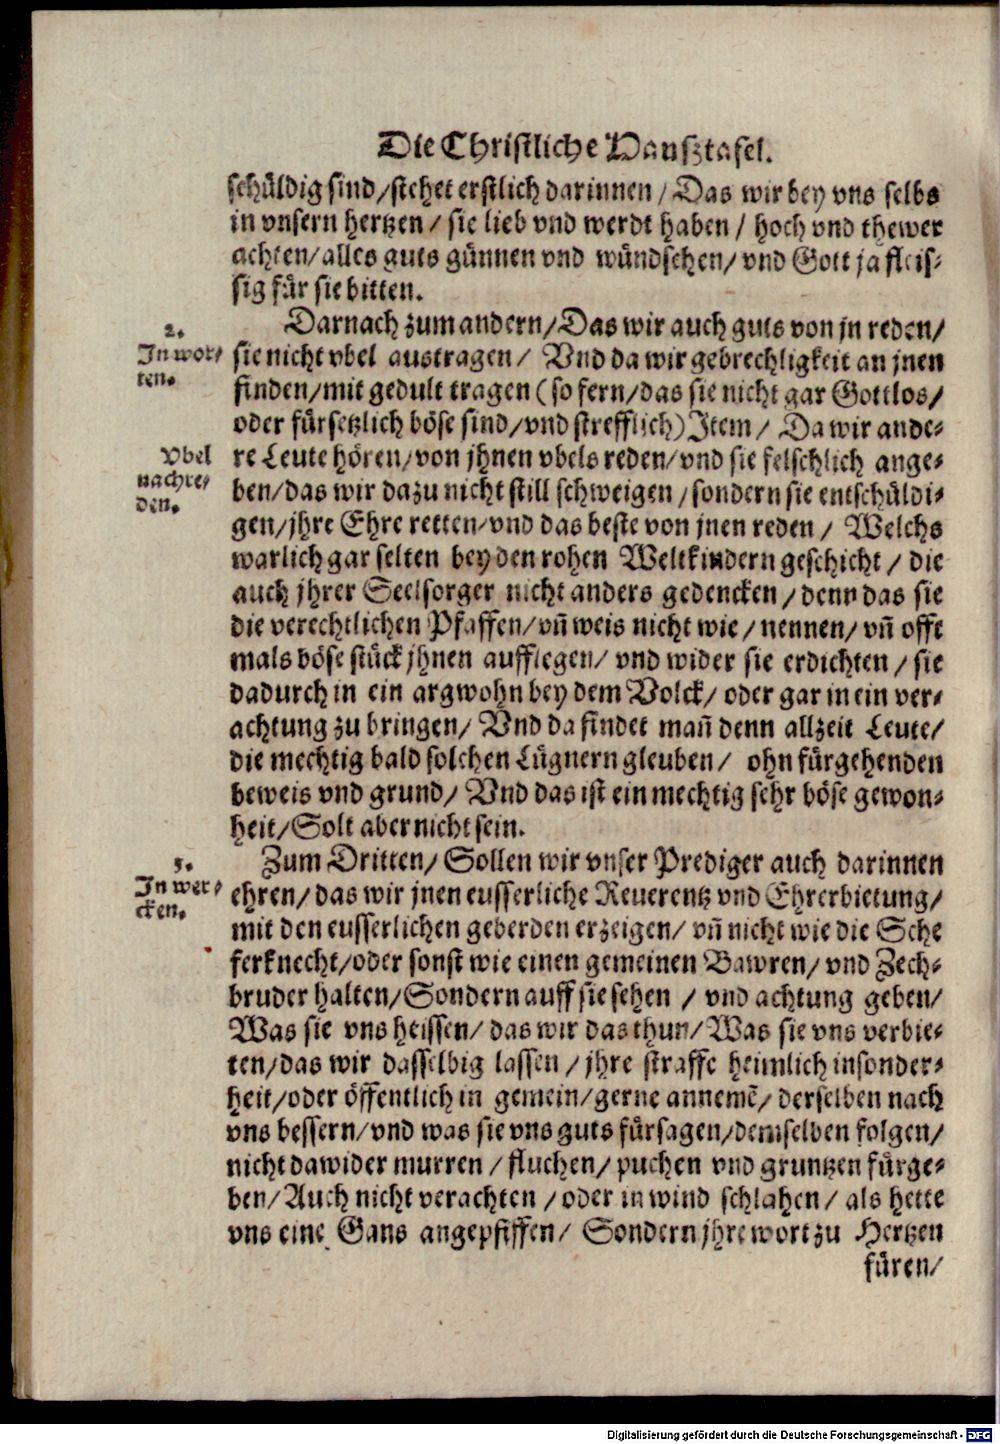 Die Christliche Hausztafel.
schüldig sind/stehet erstlich darinnen/Das wir bey vns selbs
in vnsern hertzen/ sie lieb vnd werdt haben/ hoch vnd thewer
achten/alles guts günnen vnd wündschen/ vnd Gott ja fleis-
sig für sie bitten.
Darnach zum andern/Das wir auch guts von jn reden/
2.
In wor-
ten.
sie nicht vbel austragen/ Vnd da wir gebrechligkeit an jnen
finden/mit gedult tragen (so fern/das sie nicht gar Gottlos/
oder fürsetzlich böse sind/vnd strefflich) Item/ Da wir ande-
Vbel
nachre-
den.
re Leute hören/von jhnen vbels reden/vnd sie felschlich ange-
ben/das wir dazu nicht still schweigen/sondern sie entschüldi-
gen/jhre Ehre retten/vnd das beste von jnen reden/ Welchs
warlich gar selten bey den rohen Weltkindern geschicht/ die
auch jhrer Seelsorger nicht anders gedencken/denn das sie
die verechtlichen Pfaffen/vñ weis nicht wie/nennen/vñ offt
mals böse stück jhnen aufflegen/ vnd wider sie erdichten/ sie
dadurch in ein argwohn bey dem Volck/ oder gar in ein ver-
achtung zu bringen/ Vnd da findet mañ denn allzeit Leute/
die mechtig bald solchen Lügnern gleuben/ ohn fürgehenden
beweis vnd grund/ Vnd das ist ein mechtig sehr böse gewon-
heit/Solt aber nicht sein.
3.
In wer-
cken.
Zum Dritten/ Sollen wir vnser Prediger auch darinnen
ehren/das wir jnen eusserliche Reuerentz vnd Ehrerbietung/
mit den eusserlichen geberden erzeigen/ vñ nicht wie die Sche
ferknecht/oder sonst wie einen gemeinen Bawren/ vnd Zech-
bruder halten/Sondern auff sie sehen / vnd achtung geben/
Was sie vns heissen/ das wir das thun/Was sie vns verbie-
ten/das wir dasselbig lassen/jhre straffe heimlich insonder-
heit/oder öffentlich in gemein/gerne annemẽ/ derselben nach
vns bessern/vnd was sie vns guts fürsagen/demselben folgen/
nicht dawider murren/fluchen/ puchen vnd gruntzen fürge-
ben/Auch nicht verachten/oder in wind schlahen/ als hette
vns eine Gans angepfiffen/ Sondern jhre wort zu Hertzen
füren/
Digitalisierung gefördert durch die Deutsche Forschungsgemeinschaft - DFG